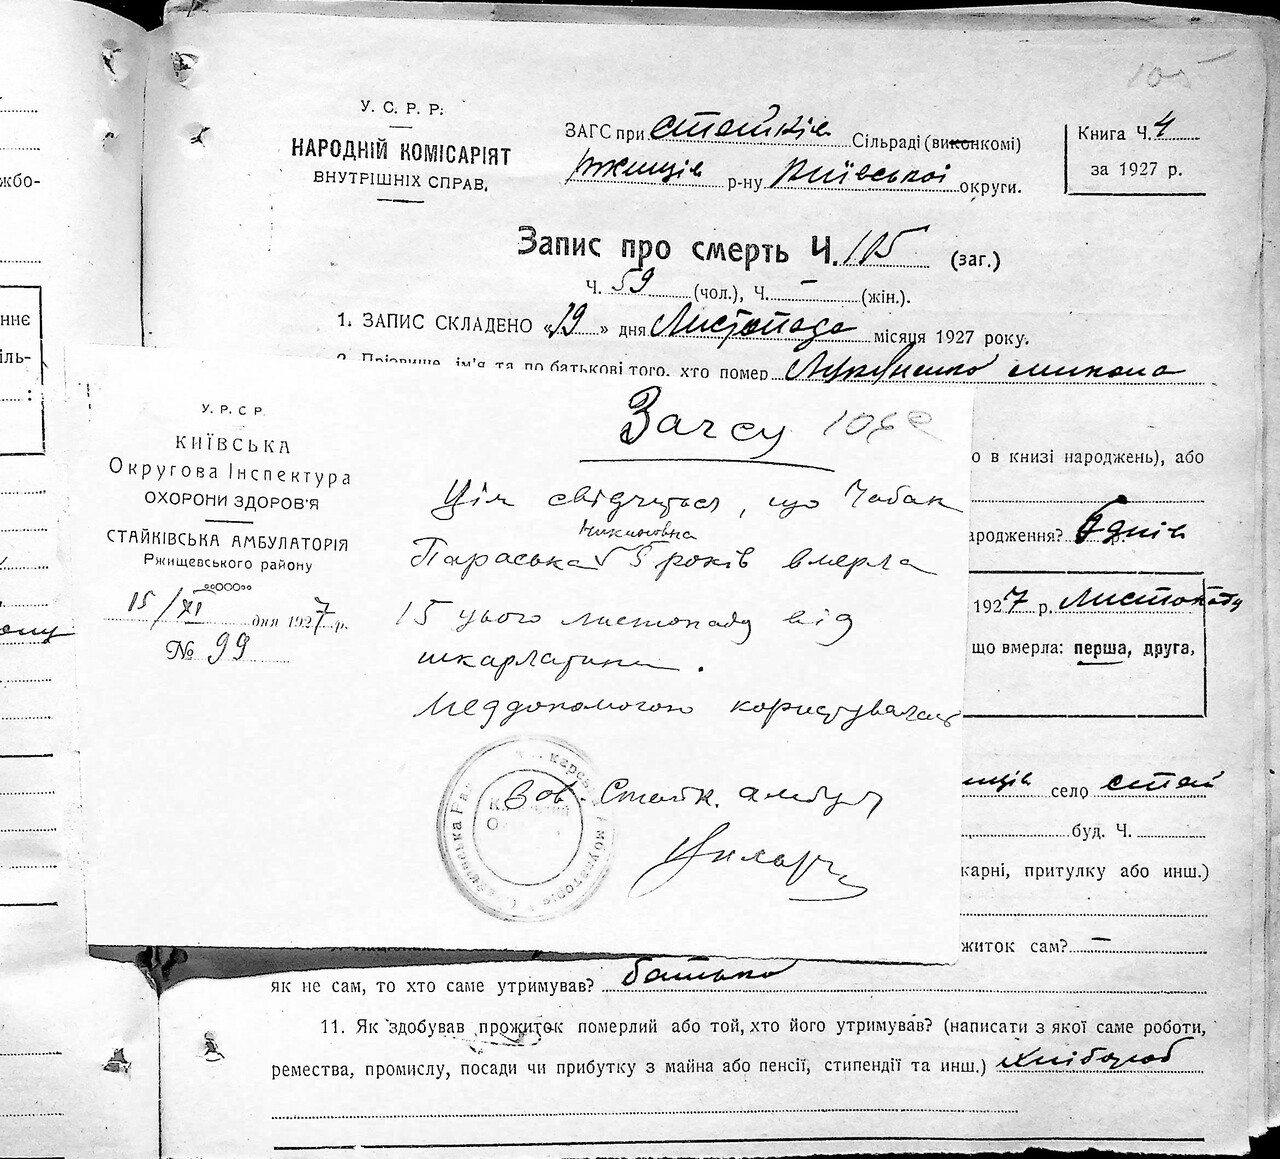 105
У. С. Р. Р.
НАРОДНІЙ КОМІСАРІЯТ
ВНУТРІШНІХ СПРАВ.
ЗАГС при Стайків Сільраді (виконкомі)
Ржищів р-ну Київської округи.
Книга Ч. 4
за 1927 р.
Запис про смерть Ч. 105 (заг.)
Ч. 59 (чол.), Ч. – (жін.).
1. ЗАПИС СКЛАДЕНО «19» дня Листопада місяця 1927 року.
2. Прізвище, ім'я та по батькові того, хто помер Микола
о в книзі народжень), або
ародження? днів
1927 р. Листопаду
що вмерла: перша, друга,
ищів село Стай
буд. Ч.
карні, притулку або инш.)
житок сам? –
як не сам, то хто саме утримував? батько
11. Як здобував прожиток померлий або той, хто його утримував? (написати з якої саме роботи,
ремества, промислу, посади чи прибутку з майна або пенсії, стипендії та инш.) Хлібороб
У. Р. С Р.
КИЇВСЬКА
Округова Інспектура
ОХОРОНИ ЗДОРОВ'Я
СТАЙКІВСЬКА АМБУЛАТОРІЯ
Ржищевського району
15/XI дня 1927 р.
№ 99
Загсу
Цім свідчиться, що Чабак
Параська 5 років вмерла
15 цього листопаду від
шкарлатини.
Меддопомогою користувалась
Зав. Стайк. амбул
жбо-
ннє
іль-
: